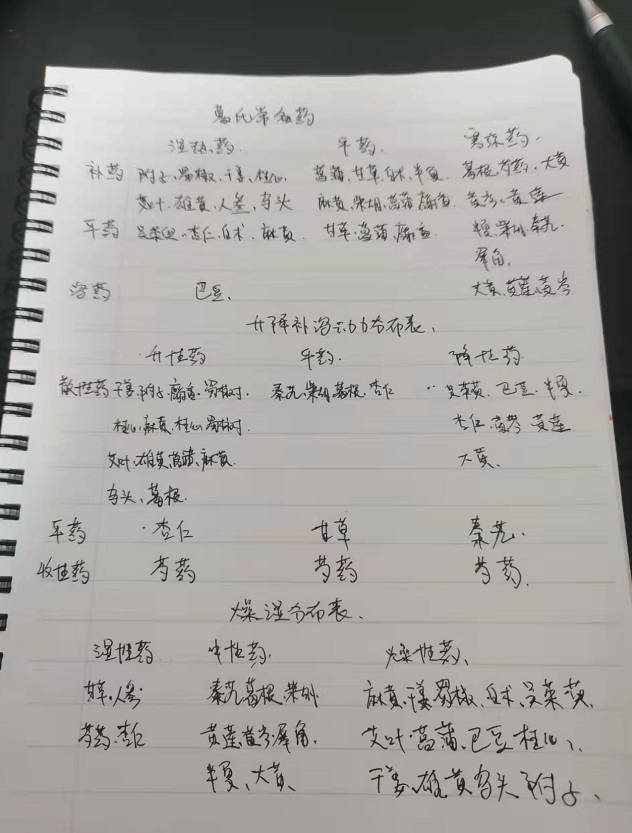 葛氏常用药
温热药. 平药. 寒凉药.
补药 附子、蜀椒、干姜、桂心. 菖蒲、甘草、白术、半夏 葛根、芍药、大黄
艾叶、雄黄、人参、乌头 麻黄、柴胡、菖蒲 黄芩、黄
平药 吴茱萸、杏仁、白术、麻黄 甘草、菖蒲 柴胡、秦艽.
犀角.
泻药 巴豆. 大黄、黄莲、黄芩
升降补泻 分布表.
升性药 平药. 降性药
散性药 干姜、附子、蜀椒 秦艽、柴胡、葛根、杏仁 吴茱萸、巴豆、半夏.
桂心、麻黄、桂心、蜀椒 杏仁、黄芩、黄莲
艾叶、雄黄、菖蒲、麻黄. 大黄.
乌头、葛根.
平药 杏仁 甘草 秦艽.
收性药 芍药 芍药 芍药.
燥湿分布表.
湿性药 中性药. 燥性药.
甘草、人参 秦艽、葛根、柴胡 麻黄、干姜、蜀椒、白术、吴茱萸、
芍药、杏仁 黄莲、黄芩、犀角. 艾叶、菖蒲、巴豆、桂心、
半夏、大黄、 干姜、雄黄、乌头、附子、